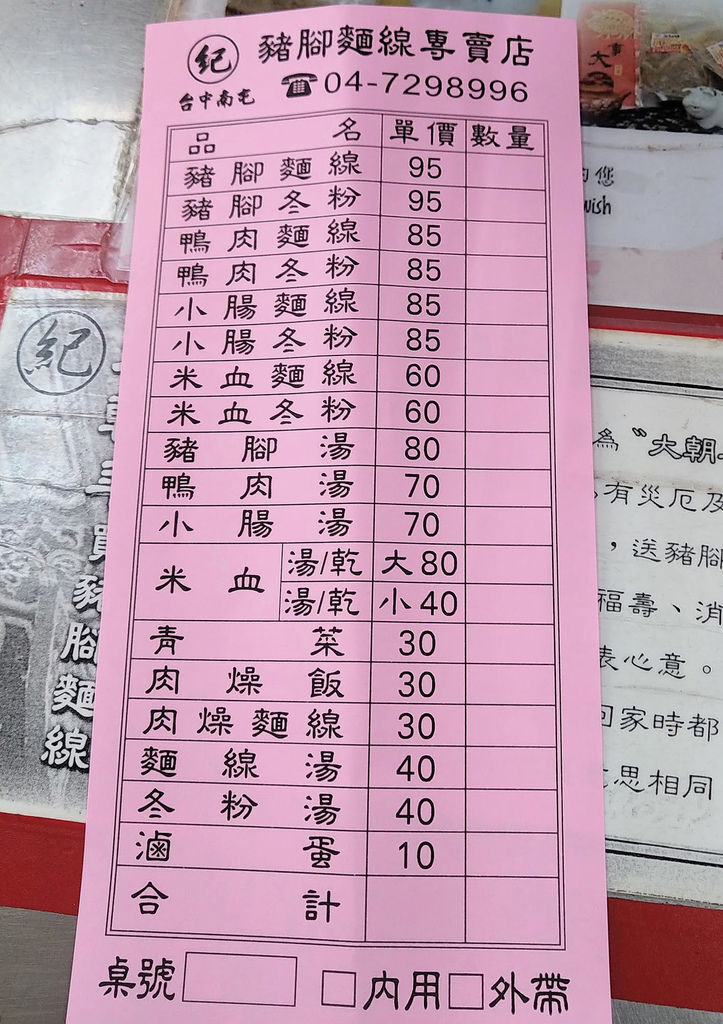 紀
豬腳麵線專賣店
台中南屯
☎04-7298996
品名 單價 數量
豬腳麵線 95
豬腳冬粉 95
鴨肉麵線 85
鴨肉冬粉 85
小腸麵線 85
小腸冬粉 85
米血麵線 60
米血冬粉 60
豬腳湯 80
鴨肉湯 70
小腸湯 70
米血 湯/乾 大80
湯/乾 小40
青菜 30
肉燥飯 30
肉燥麵線 30
麵線湯 40
冬粉湯 40
滷蛋 10
合計
桌號 □內用□外帶
紀
豬腳麵線
大
事
的您
wish
為〝大朝
有災厄及
，送豬腳
福壽、消
表心意。
回家時都
思相同